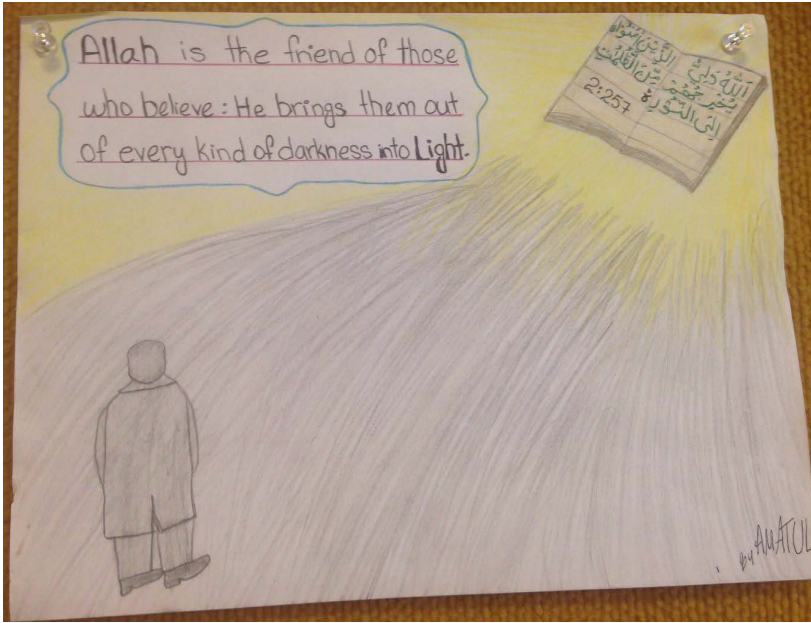 Allah is the friend of those
who believe: He brings them out
of every kind of darkness into Light.
اَللّٰهُ وَلِيُّ الَّذِيْنَ اٰمَنُوْا
يُخْرِجُهُمْ مِّنَ الظُّلُمٰتِ
اِلَى النُّوْرِ
2:257
by AMATUL